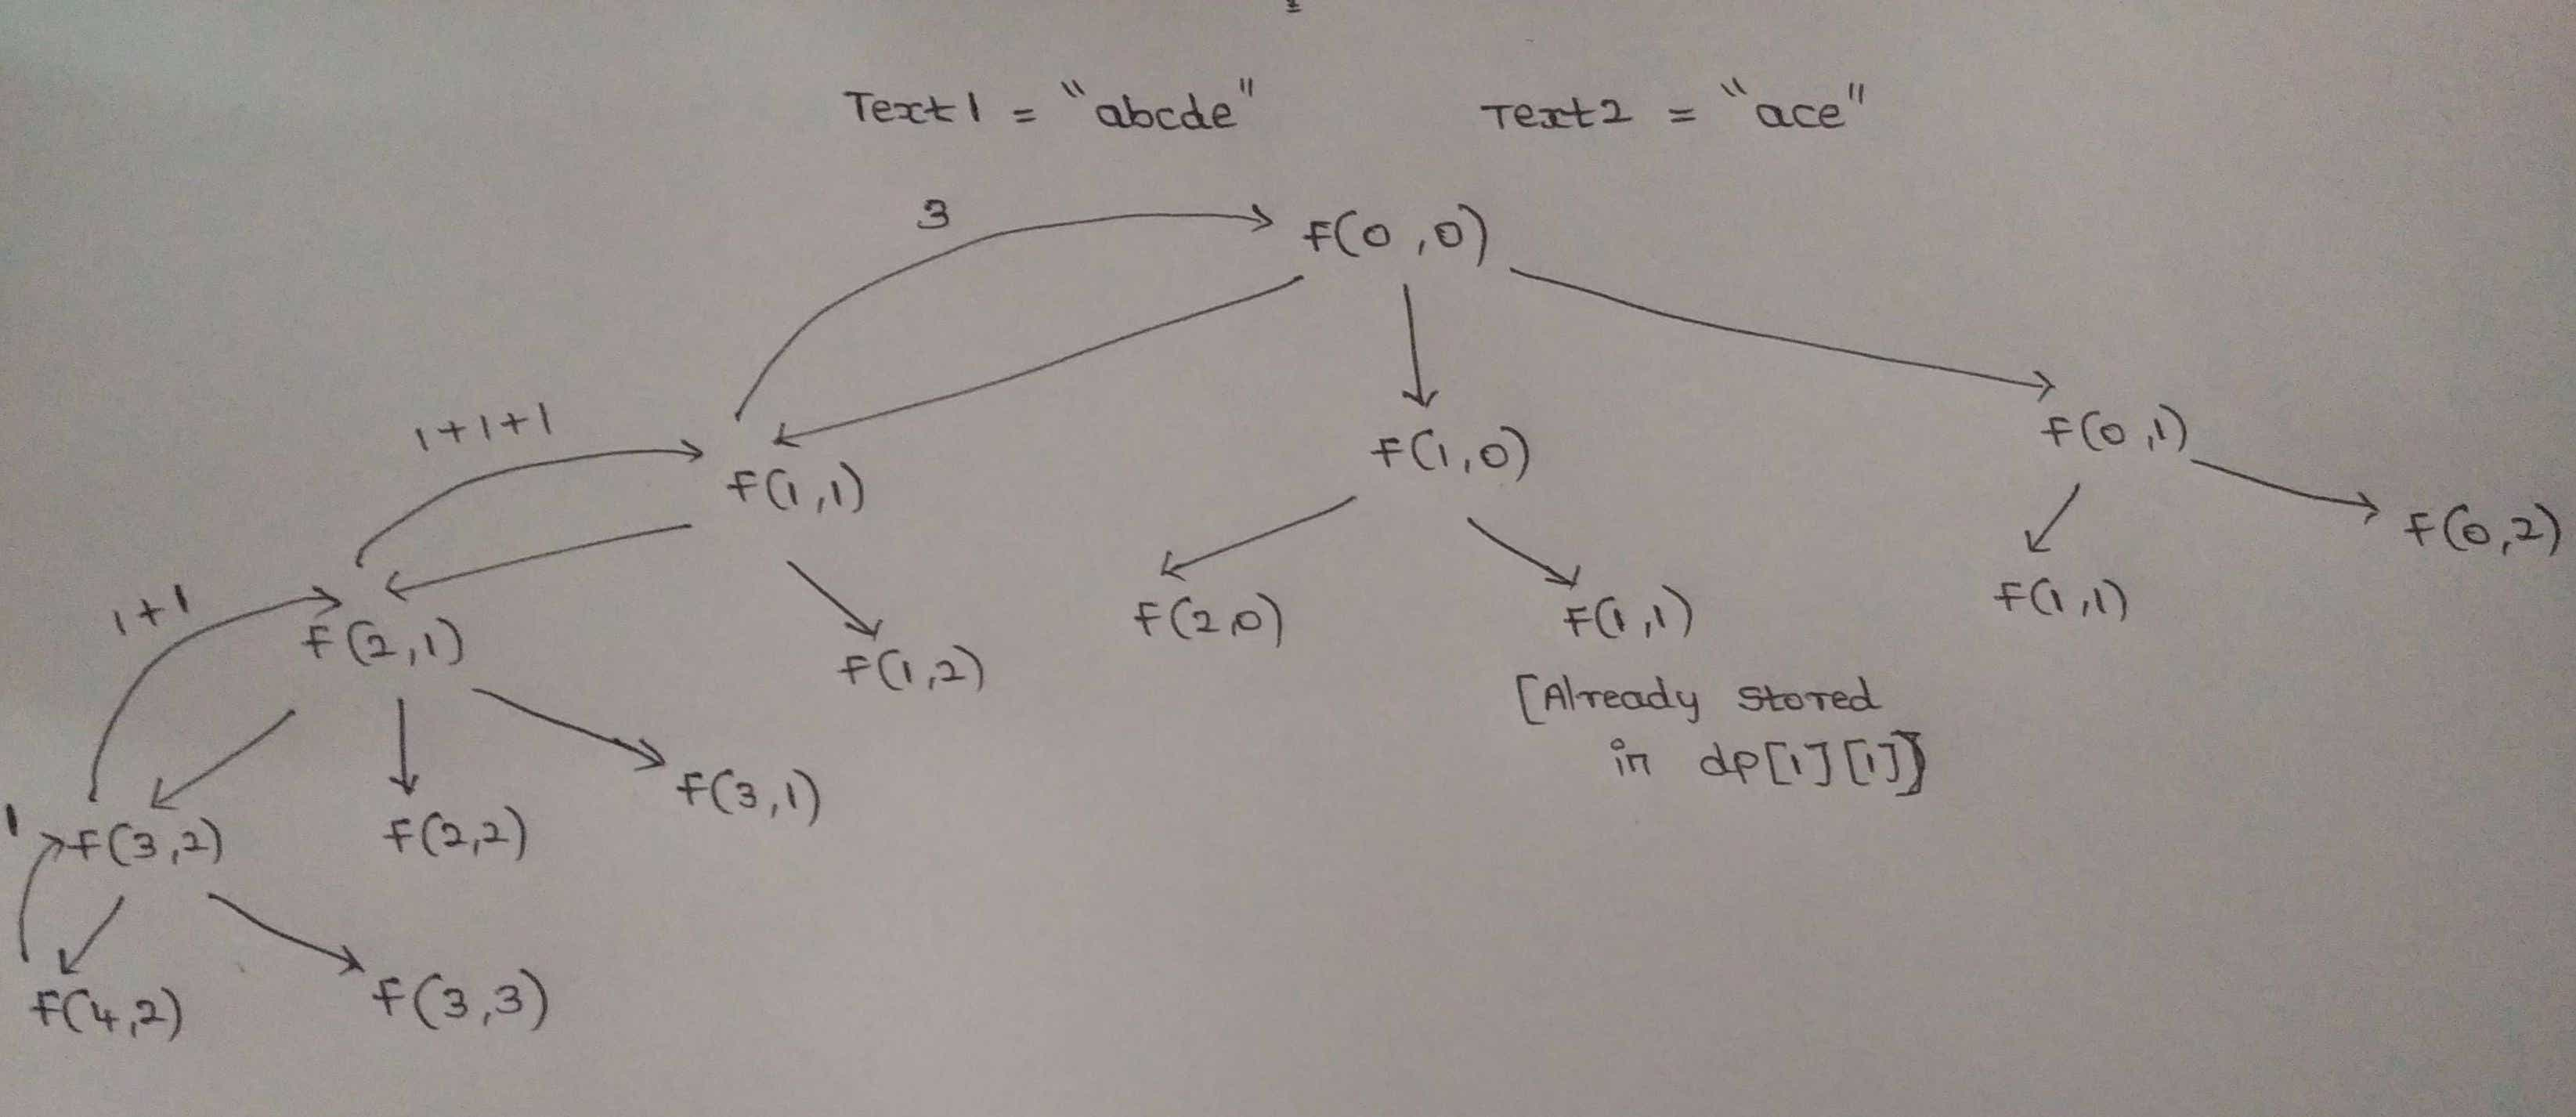 Text1 = "abcde" Text2 = "ace"
3
f(0,0)
1+1+1
f(1,1)
f(1,0)
f(0,1)
f(0,2)
1+1
f(2,1)
f(1,2)
f(2,0)
f(1,1)
f(1,1)
[Already stored
in dp[1][1]]
f(3,1)
1
f(3,2)
f(2,2)
f(4,2)
f(3,3)